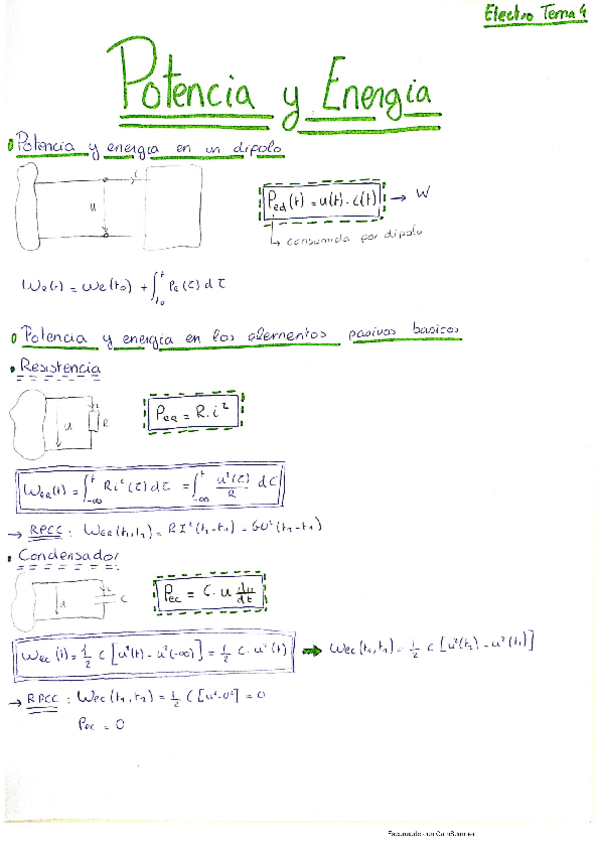 Electro Tema 4
Potencia y Energia
Potencia y energia en un dipolo
i
u
Ped(t) = u(t) · i(t) → W
↳ consumida por dipolo
We(t) = We(t0) + ∫t0^t Pe(τ) dτ
Potencia y energia en los elementos pasivos basicos
Resistencia
i
u R
PeR = R·i²
WeR(t) = ∫-∞^t Ri²(τ) dτ = ∫-∞^t u²(τ)/R dτ
→ RPCC : WeR(t1,t2) = RI²(t2-t1) = GU²(t2-t1)
Condensador
i
u C
Pec = C·u du/dt
Wec(t) = 1/2 C [u²(t) - u²(-∞)] = 1/2 C·u²(t) → Wec(t1,t2) = 1/2 C [u²(t2) - u²(t1)]
→ RPCC : Wec(t1,t2) = 1/2 C[u²-u²] = 0
Pec = 0
Escaneado con CamScanner